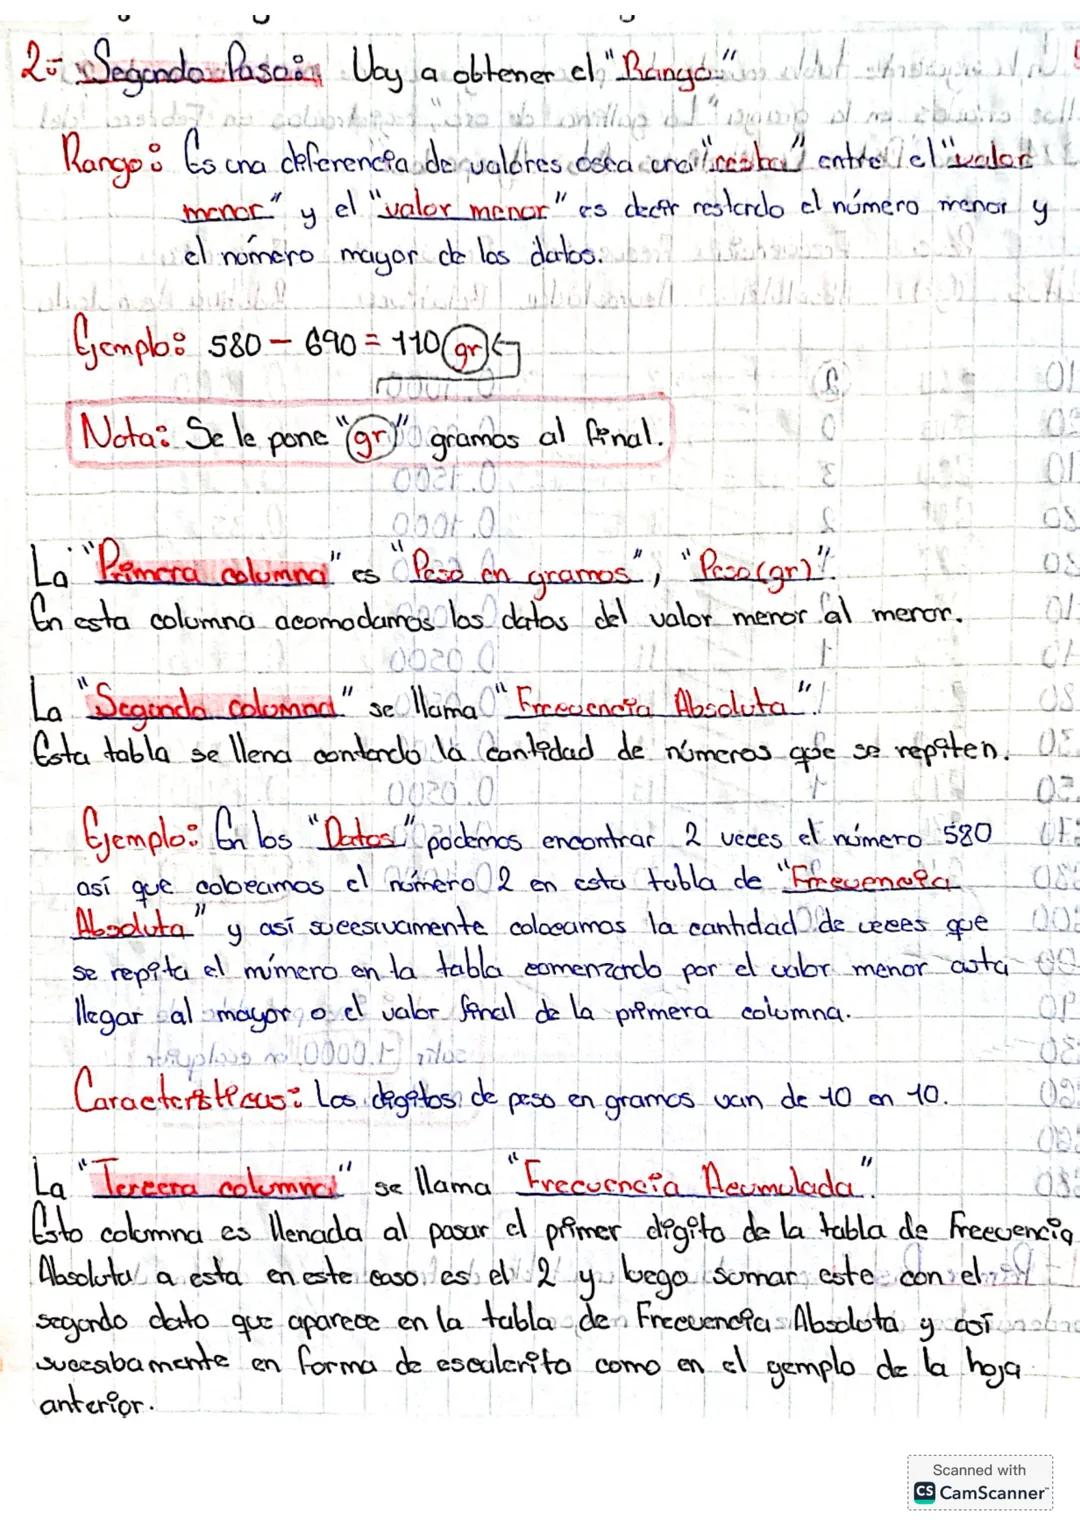 2.- Segundo Paso: Voy a obtener el "Rango"
Rango: Es una diferencia de valores osea una "resta" entre el "valor
menor" y el "valor menor" es decir restando el número menor y
el número mayor de los datos.
Ejemplo: 580 - 690 = 110 gr
Nota: Se le pone "gr" gramos al final.
La "Primera columna" es "Peso en gramos", "Peso(gr)".
En esta columna acomodamos los datos del valor menor al menor.
La "Segunda columna" se llama "Frecuencia Absoluta".
Esta tabla se llena contando la cantidad de números que se repiten.
Ejemplo: En los "Datos" podemos encontrar 2 veces el número 580
así que colocamos el número 2 en esta tabla de "Frecuencia
Absoluta" y así sucesivamente colocamos la cantidad de veces que
se repita el número en la tabla comenzando por el valor menor asta
llegar al mayor o el valor final de la primera columna.
Características: Los digitos de peso en gramos van de 10 en 10.
La "Tercera columna" se llama "Frecuencia Acumulada".
Esta columna es llenada al pasar el primer digito de la tabla de Frecuencia
Absoluta a esta en este caso es el 2 y luego sumar este con el
segundo dato que aparece en la tabla de Frecuencia Absoluta y así
sucesibamente en forma de escalerita como en el gemplo de la hoja
anterior.
Scanned with
CS CamScanner